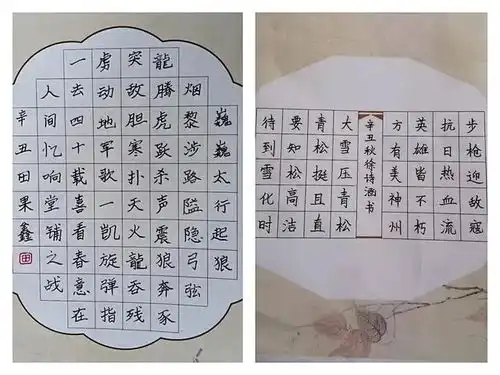 巍巍太行起狼
烟黎涉路隘隐弓弦
龍腾虎跃杀声震狼奔豕
突敌胆寒扑天火龍吞残
虏动地军歌一凯旋弹指
一去四十载喜看春意在
人间忆响堂铺之战
辛丑田果鑫
田
步枪迎敌寇
抗日热血流
英雄皆不朽
方有美神州
辛丑秋徐诗涵书
大雪压青松
青松挺且直
要知松高洁
待到雪化时